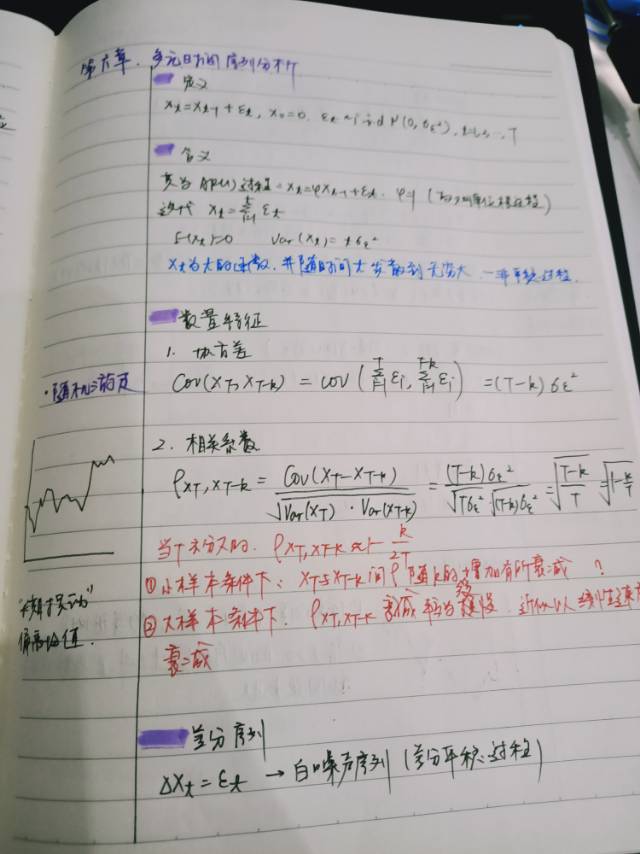 第六章. 多元时间序列分析
定义
x_t = x_{t-1} + ε_t, x_0 = 0. ε_t ~ i.i.d N(0, σ_ε²), t=1,2,…,T
含义
其为 AR(1) 过程: x_t = φx_{t-1} + ε_t. φ=1 (称为单位根过程)
迭代 x_t = Σ_{i=1}^{t} ε_t
E(x_t)=0 Var(x_t) = tσ_ε²
x_t为t的函数, 并随时间t发散到无穷大. —非平稳过程.
数量特征
1. 协方差
·随机游走
Cov(x_T, x_{T-k}) = cov(Σ_{i=1}^{T} ε_i, Σ_{i=1}^{T-k} ε_i) = (T-k)σ_ε²
2. 相关系数
ρ_{x_T, x_{T-k}} = Cov(x_T - x_{T-k}) / √(Var(x_T) · Var(x_{T-k})) = (T-k)σ_ε² / (√(Tσ_ε²) √((T-k)σ_ε²)) = √((T-k)/T) = √(1-k/T)
当T充分大时. ρ_{x_T, x_{T-k}} ≈ 1 - k/2T
① 小样本条件下: x_T与x_{T-k}间ρ随k的增加有所衰减 ?
② 大样本条件下: ρ_{x_T, x_{T-k}} 衰减 较为缓慢. 近似以线性速度
衰减
偏离均值.
差分序列
Δx_t = ε_t → 白噪声序列 (差分平稳过程)